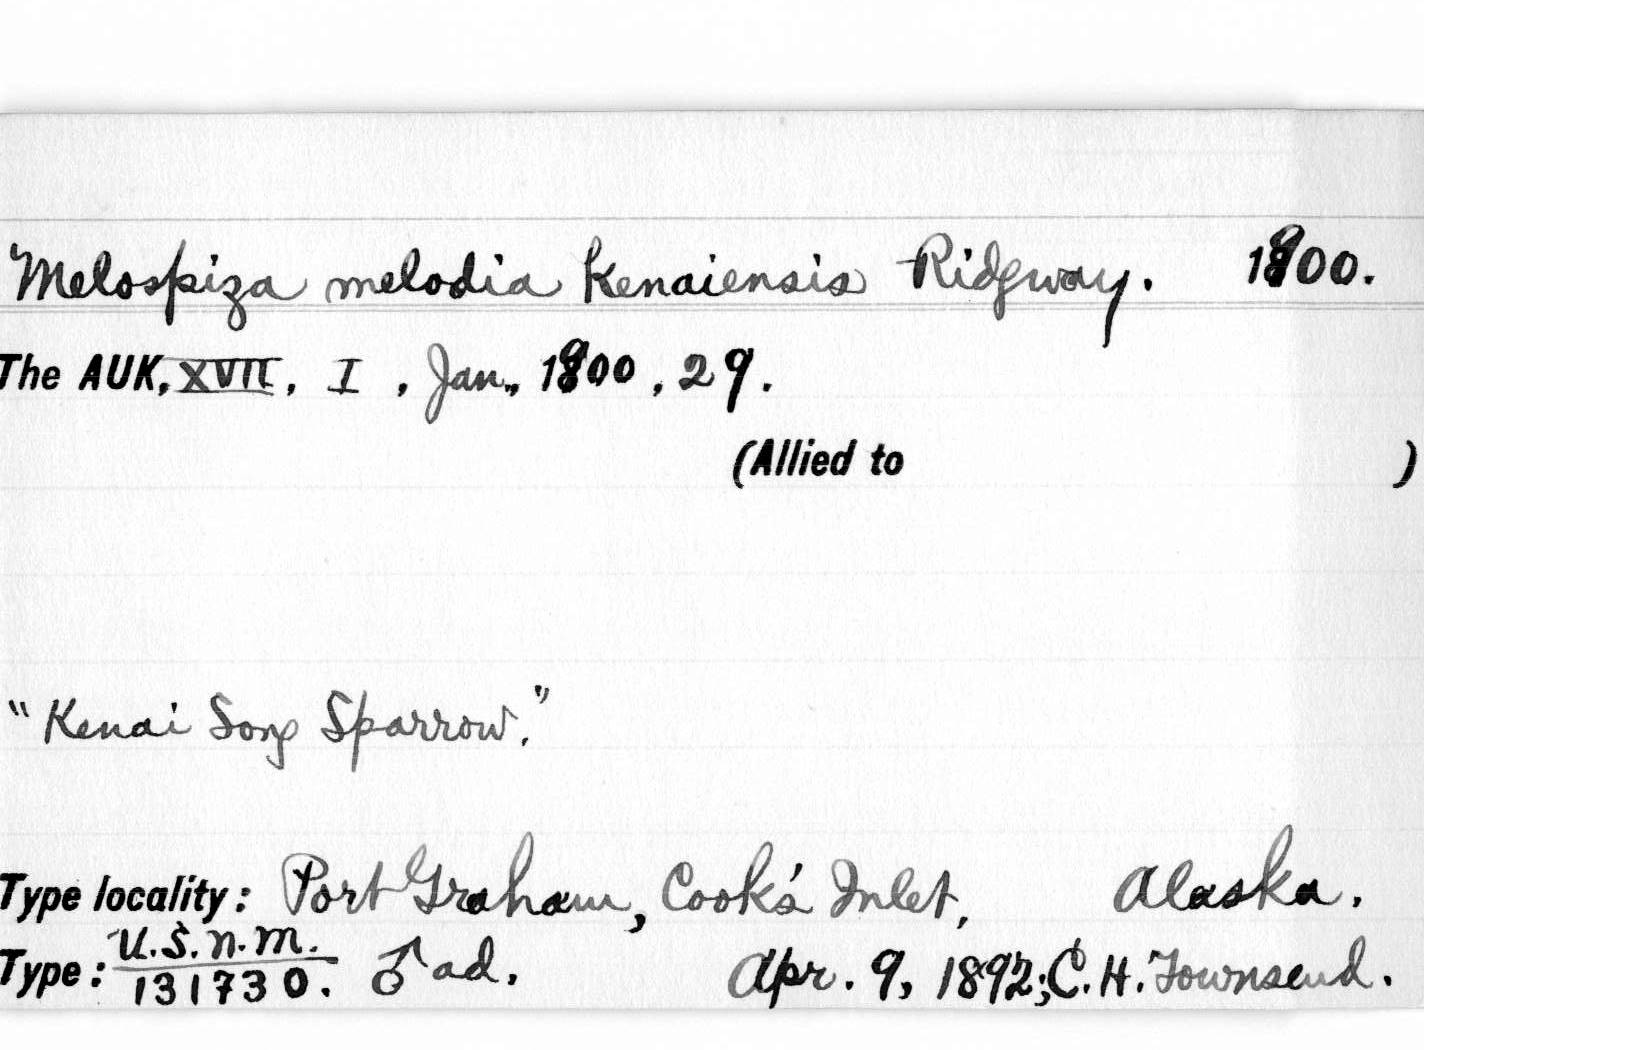 Melospiza melodia kenaiensis Ridgway. 1900.
The AUK, XVII, I, Jan., 1900, 29.
(Allied to )
"Kenai Song Sparrow."
Type locality: Port Graham, Cook's Inlet, Alaska.
Type: U.S.N.M. 131730. ♂ ad. Apr. 9, 1892; C.H. Townsend.